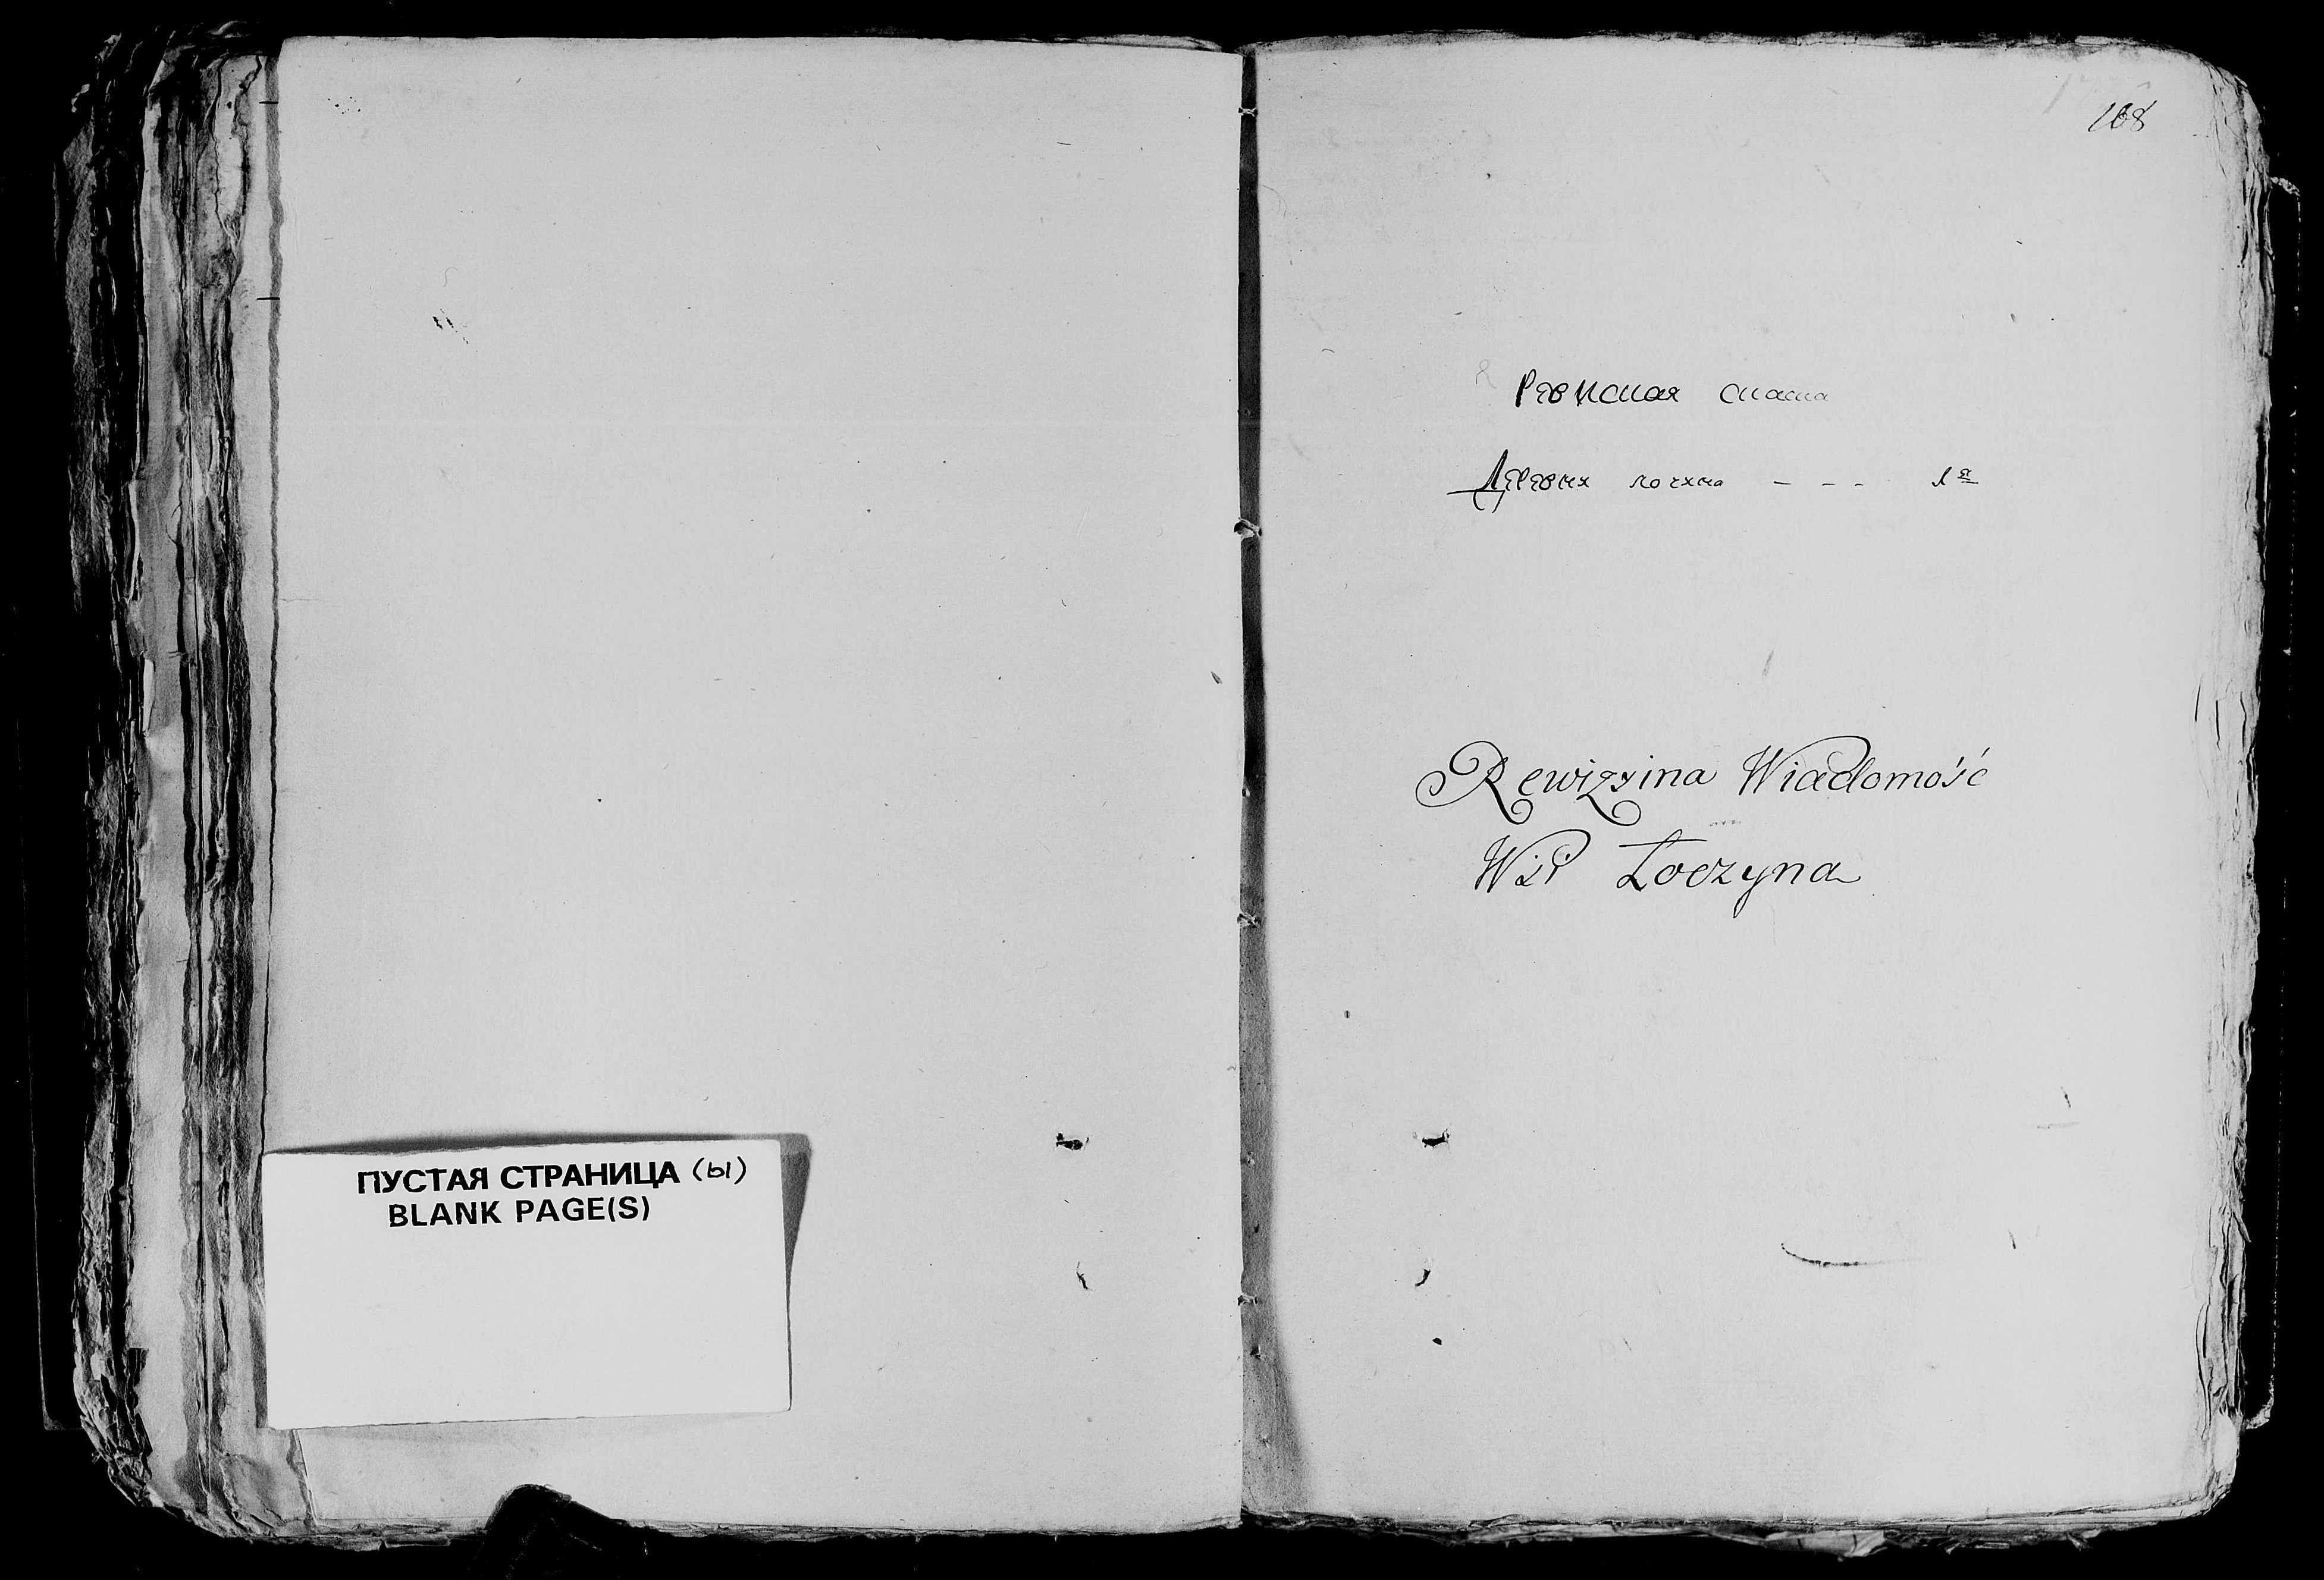 ПУСТАЯ СТРАНИЦА (ы)
BLANK PAGE(S)
168
Ревиская скаска
Деревни лочина - - - 1я
Rewizyina Wiadomość
Wsi Łoczyna